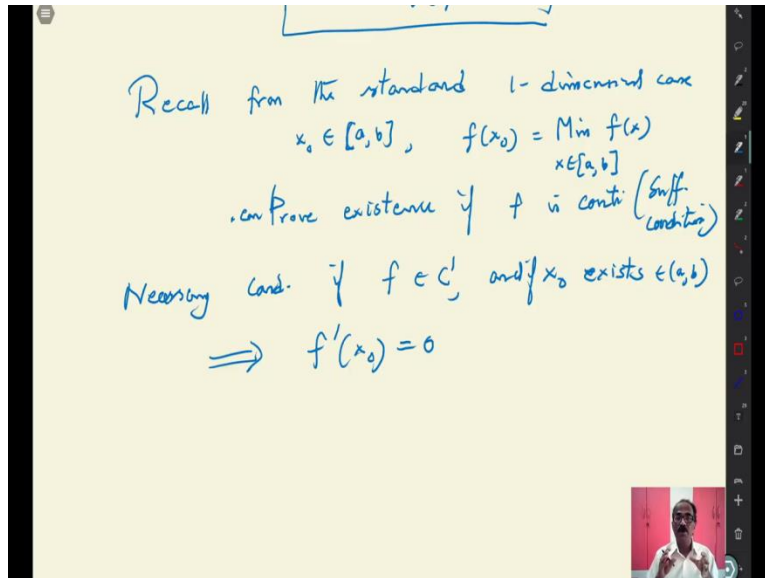 Recall from the standard 1-dimensional case
x₀ ∈ [a,b], f(x₀) = Min f(x)
x∈[a,b]
. can Prove existence if f is conti (Suff. condition)
Necessary cond. if f ∈ C', and if x₀ exists ∈ (a,b)
⟹ f'(x₀) = 0